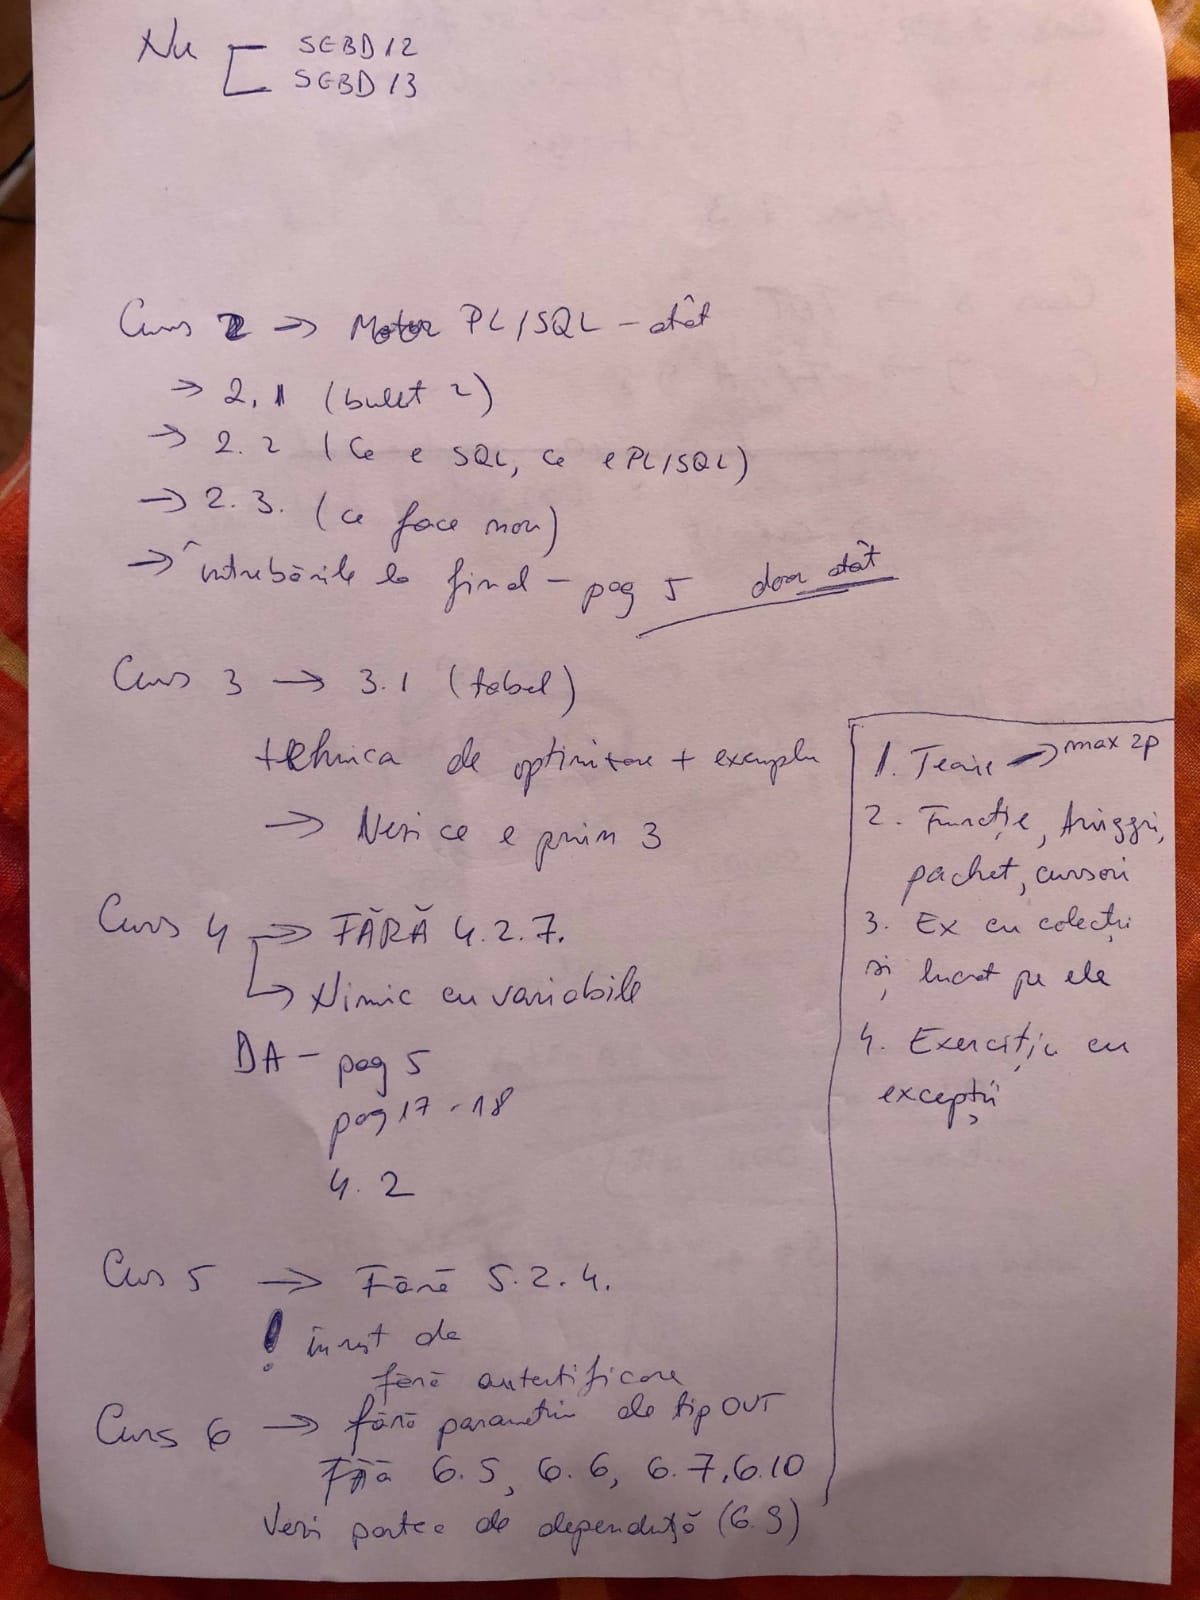 Nu SGBD12
SGBD13
Curs 2 → Motor PL/SQL - atât
→ 2.1 (bulet 2)
→ 2.2 (Ce e SQL, ce e PL/SQL)
→ 2.3. (ce face non)
→ întrebările la final - pag 5 doar atât
Curs 3 → 3.1 (tabel)
tehnica de optimizare + exemplu
→ Vezi ce e prin 3
Curs 4 → FĂRĂ 4.2.7.
→ Nimic cu variabile
DA - pag 5
pag 17 - 18
4.2
Curs 5 → Fără 5.2.4.
! de
fără autentificare
Curs 6 → fără parametrii de tip OUT
Fără 6.5, 6.6, 6.7, 6.10
Vezi partea de dependență (6.9)
1. Teorie → max 2p
2. Funcție, triggeri,
pachet, cursori
3. Ex cu colecții
și lucrat pe ele
4. Exercițiu cu
excepții